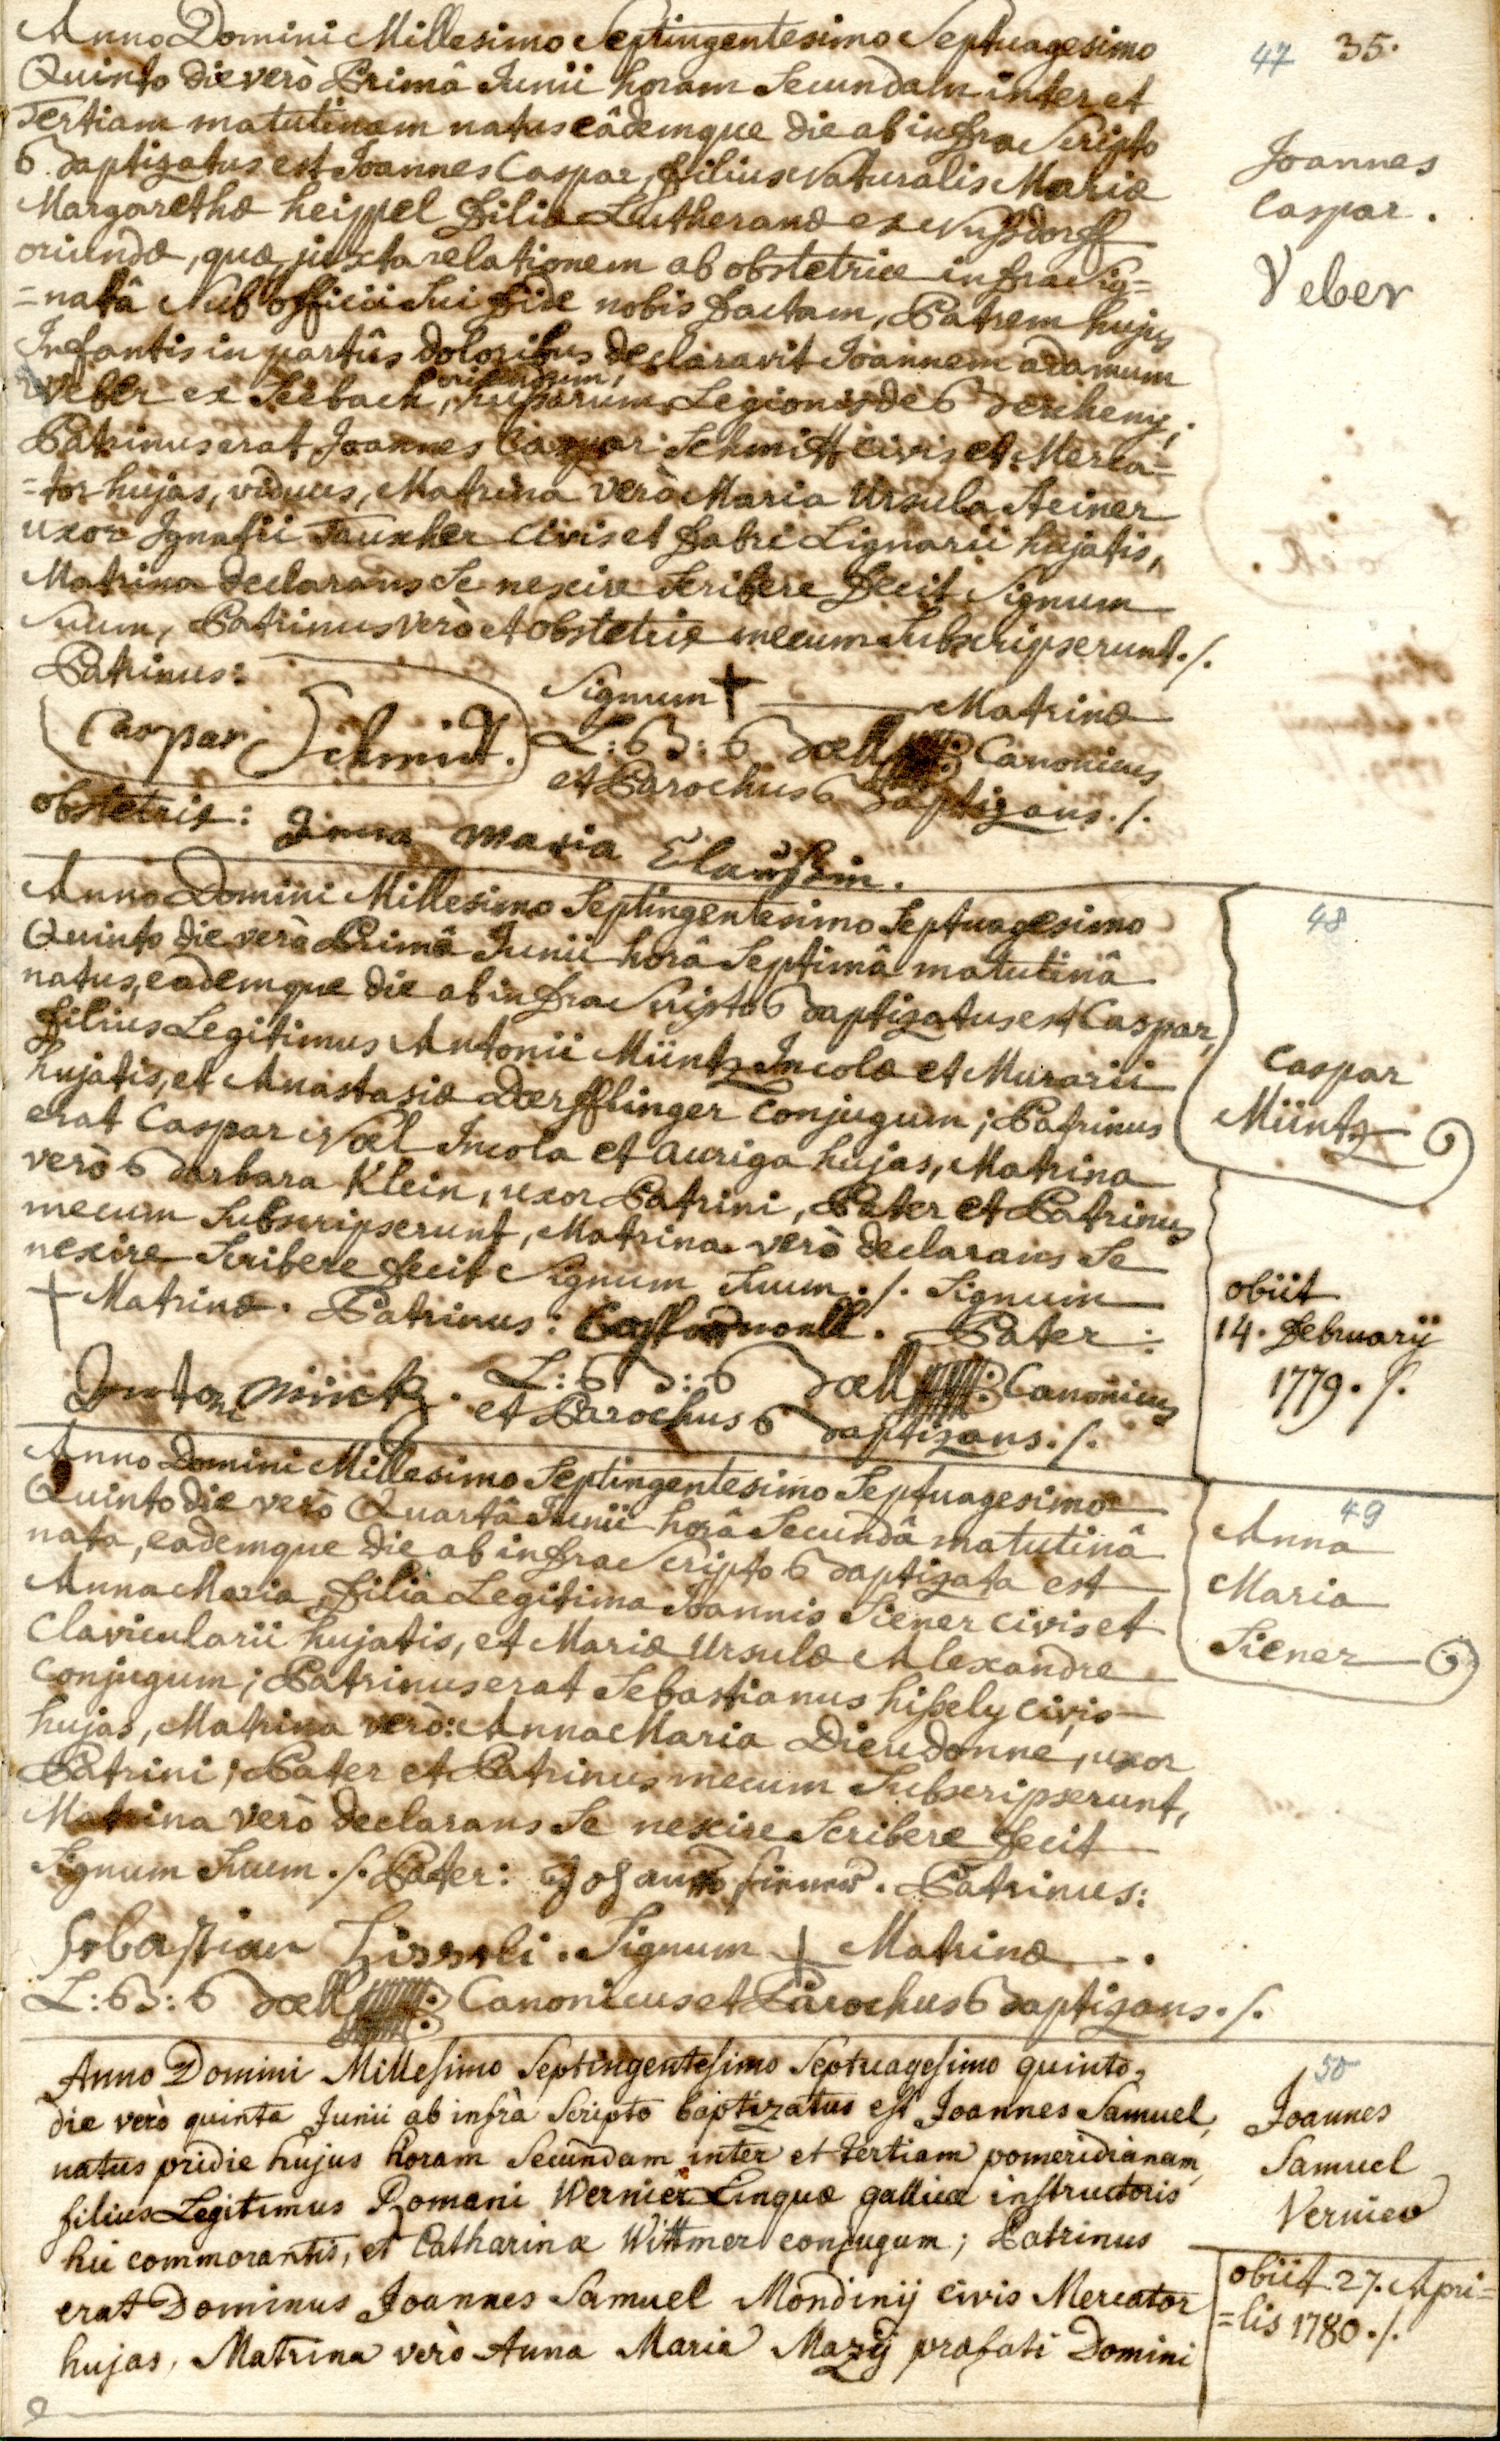 47 35.
Anno Domini Millesimo Septingentesimo Septuagesimo
Quinto die verò Primâ Junii horam Secundam inter et
Tertiam matutinam natus eâdemque die ab infra Scripto
Baptizatus est Joannes Caspar, filius Naturalis Mariæ
Margarethæ heippel filiæ Lutheranæ ex Nussdorff
oriundæ, quæ juxta relationem ab obstetrice infra Sig=
=natâ Sub officii Sui fide nobis factam, Patrem hujus
Infantis in partûs doloribus declaravit Joannem adamum
Weber ex Seebach, oriundum, husarum Legionis de Bercheny;
Patrinus erat Joannes Caspar Schmitt civis et Merca=
=tor hujas, viduus, Matrina verò Maria Ursula Steiner
uxor Ignatii Tauxher civis et fabri Lignarii hujatis,
Matrina declarans Se nescire Scribere fecit Signum
Suum, Patrinus verò et obstetrix mecum Subscripserunt ./.
Patrinus:
Signum + Matrinæ
Caspar Schmitt.
L: B: Bœll Canonicus
et Parochus Baptizans ./.
obstetrix: Anna Maria
Joannes
Caspar.
Veber
Anno Domini Millesimo Septingentesimo Septuagesimo
Quinto die verò Primâ Junii horâ Septimâ matutinâ
natus, eademque die ab infra Scripto Baptizatus est Caspar,
filius Legitimus Antonii Müntz Incolæ et Murarii
hujatis, et Anastasiæ Dœrfflinger conjugum; Patrinus
erat Caspar Noël Incola et auriga hujas, Matrina
verò Barbara Klein, uxor Patrini, Pater et Patrinus
mecum Subscripserunt, Matrina verò declarans Se
nescire Scribere fecit Signum Suum ./. Signum
+ Matrinæ. Patrinus: Pater:
Antoni Mintz. L: B: Bœll Canonicus
et Parochus Baptizans ./.
48
Caspar
Müntz
obiit
14. februarii
1779 ./.
Anno Domini Millesimo Septingentesimo Septuagesimo
Quinto die verò Quartâ Junii horâ Secundâ matutinâ
nata, eademque die ab infra Scripto Baptizata est
Anna Maria, filia Legitima Joannis Siener civis et
Clavicularii hujatis, et Mariæ Ursulæ Alexandre
conjugum; Patrinus erat Sebastianus hissely civis
hujas, Matrina verò: Anna Maria Dieudonné, uxor
Patrini; Pater et Patrinus mecum Subscripserunt,
Matrina verò declarans Se nescire Scribere fecit
Signum Suum ./. Pater: Johannes siener. Patrinus:
Sebastian Hisseli. Signum + Matrinæ.
L: B: Bœll Canonicus et Parochus Baptizans ./.
49
Anna
Maria
Siener
Anno Domini Millesimo Septingentesimo Septuagesimo quinto,
die verò quinta Junii ab infrà Scripto baptizatus est Joannes Samuel,
natus pridie hujus horam Secundam inter et tertiam pomeridianam
filius Legitimus Romani Wernier Linguæ gallicæ instructoris
hic commorantis, et Catharinæ Wittmer conjugum; Patrinus
erat Dominus Joannes Samuel Mondinij civis Mercator
hujas, Matrina verò Anna Maria Mazij præfati Domini
50
Joannes
Samuel
Vernier
obiit 27. Apri=
=lis 1780 ./.